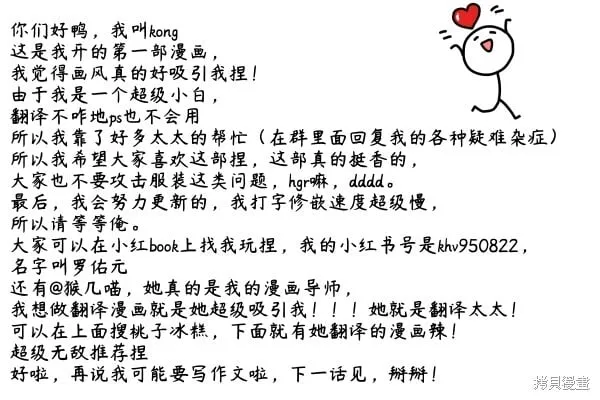 你们好鸭，我叫kong
这是我开的第一部漫画，
我觉得画风真的好吸引我捏！
由于我是一个超级小白，
翻译不咋地ps也不会用
所以我靠了好多太太的帮忙（在群里面回复我的各种疑难杂症）
所以我希望大家喜欢这部捏，这部真的挺香的，
大家也不要攻击服装这类问题，hgr嘛，dddd。
最后，我会努力更新的，我打字修嵌速度超级慢，
所以请等等俺。
大家可以在小红book上找我玩捏，我的小红书号是khv950822，
名字叫罗佑元
还有@猴几喵，她真的是我的漫画导师，
我想做翻译漫画就是她超级吸引我！！！她就是翻译太太！
可以在上面搜桃子冰糕，下面就有她翻译的漫画辣！
超级无敌推荐捏
好啦，再说我可能要写作文啦，下一话见，掰掰！
拷貝漫畫